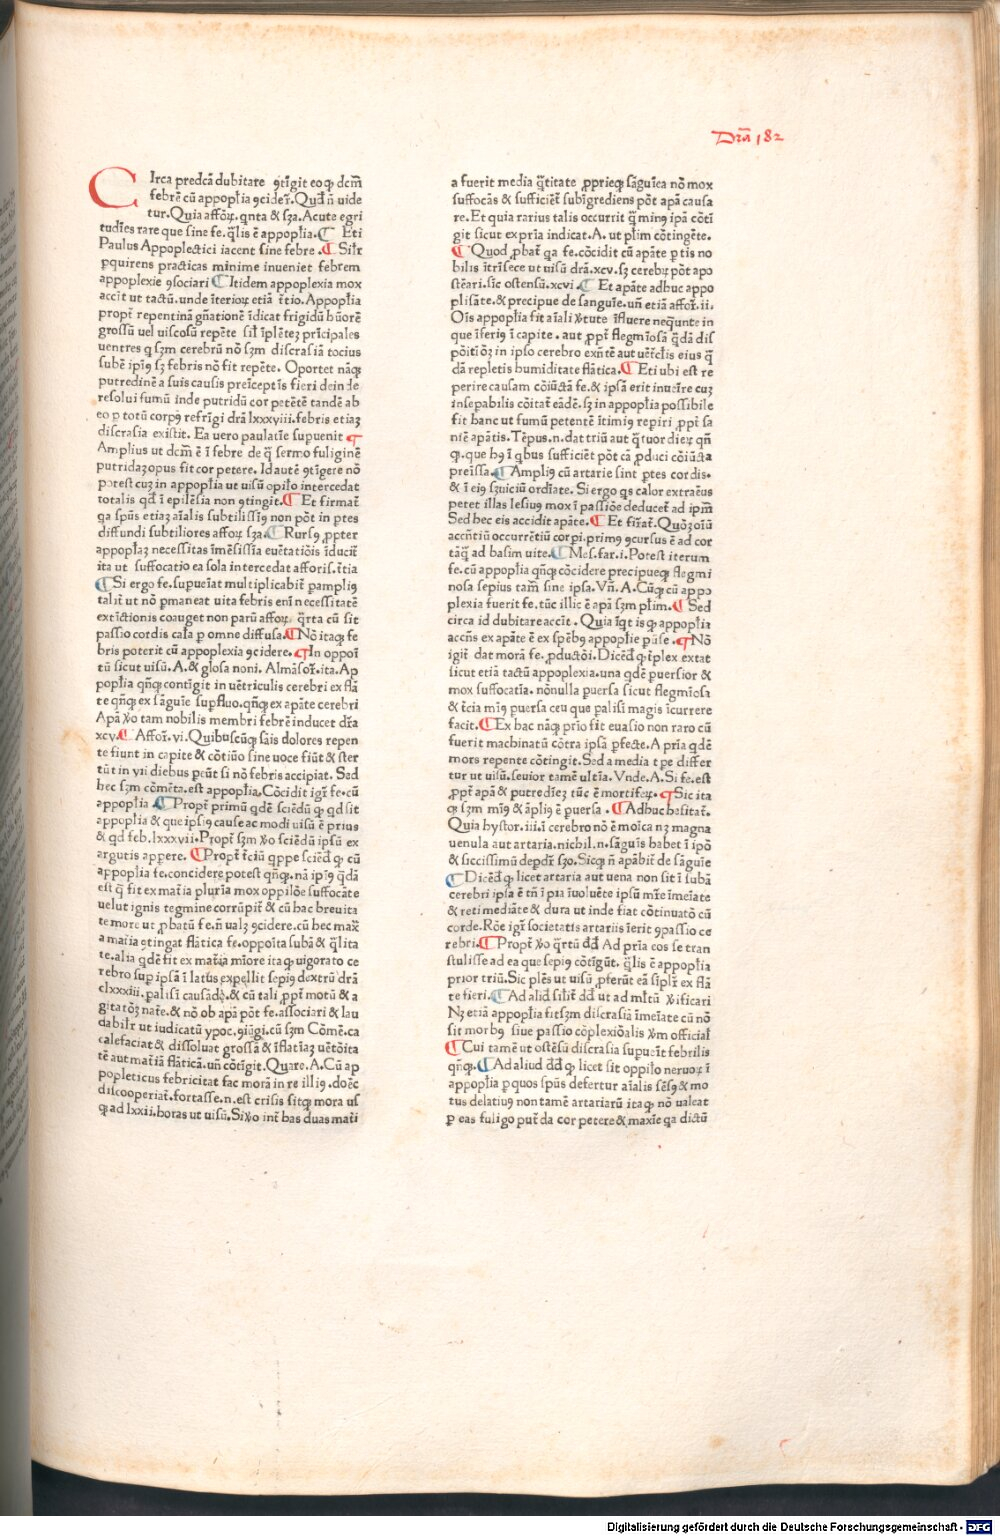 Dr̃a 182
CIrca predcā dubitare ꝯtīgit eo qꝫ dcm̄
febrē cū appopl̄ia ꝯciderꝫ. Qud̄ n̄ uide
tur. Quia afforꝫ. qnta & sꝫa. Acute egri
tudīes rare que sine fe. q̄lis ē appopl̄ia. ¶ Eti
Paulus Appoplectici iacent sine febre. ¶ Sil̄r
ꝑquirens practicas minime inueniet febrem
appoplexie ꝯsociari ¶ Itidem appoplexia mox
accīt ut tactū. unde īteriorꝫ etiā t̄tio. Appopl̄ia
propt̄ repentinā gn̄ationē īdicat frigidū hūorē
grossū uel uiscosū repēte sil̄ īplētez prīcipales
uentres q sꝫm cerebrū nō sꝫm discrasiā tocius
subē ipīꝯ sꝫ febris nō fit repēte. Oportet nāqꝫ
putredinē a suis causis preīceptīs fieri dein de
resolui fumū inde putridū cor petētē tandē ab
eo ꝑ totū corpꝯ refrīgi drā lxxxviii. febris etiaꝫ
discrasia existit. Ea uero paulatīe supuenit ¶
Amplius ut dcm̄ ē ī febre de q̄ sermo fuliginē
putridaꝫ opus fit cor petere. Id autē ꝯtīgere nō
potest cuꝫ in appopl̄ia ut uisū opil̄o intercedat
totalis qd̄ ī epilēsia non ꝯtingit. ¶ Et firmat̄
qa spūs etiaꝫ aīalis subtilissīꝯ non pōt in ptes
diffundi subtiliores afforꝫ sꝫa. ¶ Rursꝯ ꝓpter
appopl̄aꝫ necessitas īmēsissīa euētatiōis īducit̄
ita ut suffocatio ea sola intercedat afforis. t̄tia
¶ Si ergo fe. supueīat multiplicabit̄ pampliꝯ
talit̄ ut nō ꝑmaneat uita febris enī necessitatē
extīctionis coauget non parū afforꝫ. q̄rta cū sit
passio cordis cal̄a ꝑ omne diffusa. ¶ Nō itaqꝫ fe
bris poterit cū appoplexia ꝯcidere. ¶ In oppoī
tū sicut uisū. A. & glosa noni. Almāsorꝫ. ita. Ap
popl̄ia qn̄qꝫ contīgit in uētriculis cerebri ex flā
te qn̄qꝫ ex sāguīe supfluo. qn̄qꝫ ex apāte cerebri
Apā ꝟo tam nobilis membri febrē inducet dr̄a
xcv. ¶ Afforꝫ. vi. Quibuscūqꝫ sāis dolores repen
te fiunt in capite & cōtīuo sine uoce fiūt & ster
tūt in vii diebus pcūt si nō febris accipiat. Sed
hec sꝫm cōmēta. est appopl̄ia. Cōcidit igr̄ fe. cū
appopl̄ia. ¶ Propt̄ primū qdē sciēdū qꝫ qd sit
appopl̄ia & que ipsīꝯ cause ac modi uisū ē prius
& qd feb. lxxxvii. Propt̄ sꝫm ꝟo sciēdū ipsū ex
argutis appere. ¶ Propt̄ t̄ciū qppe sciēd̄ qꝫ cū
appopl̄ia fe. concidere potest qn̄qꝫ. nā ipīꝯ qdā
est q̄ fit ex mat̄ia plurīa mox oppilōe suffocāte
uelut ignis tegmine corrūpit̄ & cū hac breuita
te more ut ꝓbatū fe. n̄ ualꝫ ꝯcidere. cū hec max̄
a mat̄ia ꝯtingat flātica fe. oppoīta subā & q̄lita
te. alia qdē fit ex mat̄ia mīore ita qꝫ uigorato ce
rebro sup ipsā ī latus expellit sepīꝯ dextrū drā
clxxxiii. palisī causādē. & cū tali ꝓpt̄ motū & a
gitatōꝫ nate. & nō ob apā pōt fe. associari & lau
dabilr̄ ut iudicatū ypoc. ꝯiūgi. cū sꝫm Cōmē. ca
calefaciat & dissoluat grossā & īflatīaꝫ uētōita
tē aut mat̄iā flāticā. un̄ cōtīgit. Quare. A. Cū ap
popleticus febricitat fac morā in re illīꝯ. doēc
discooperiat̄. fortasse. n. est crisis sitqꝫ mora us
qꝫ ad lxxii. horas ut uisū. Si ꝟo int̄ has duas mat̄i
a fuerit media q̄titate ꝓprieqꝫ sāguīea nō mox
suffocās & sufficiēt̄ subīgrediens pōt apā causa
re. Et quia rarius talis occurrit q̄ minꝯ ipā cōtī
git sicut ex pria indicat. A. ut pl̄im cōtingēte.
¶ Quod ꝓbat̄ qa fe. cōcidit cū apāte ptis no
bilis ītrīsece ut uisū drā. xcv. sꝫ cerebꝫ pōt apo
stēari. sic ostensū. xcvi. ¶ Et apāte adhuc appo
plisāte. & precipue de sanguīe. un̄ etiā afforꝫ. ii.
Oīs appopl̄ia fit aīali ꝟtute īfluere neq̄unte in
que īferiꝯ ī capite. aut ꝓpt̄ flegmīosā q̄dā dis
pōitiōꝫ in ipso cerebro exn̄tē aut uētr̄clis eius q̄
dā repletis humiditate flātica. ¶ Eti ubi est re
perire causam cōiūctā fe. & ipsā erit inueīre cuꝫ
insepabilis cōitat̄ eādē. sꝫ in appopl̄ia possibile
fit hanc ut fumū petentē ītimīꝯ repiri ꝓpt̄ sa
niē apātis. Tēpus. n. dat triū aut q̄tuor dieꝫ qn̄
qꝫ. que hꝯ ī qbus sufficiēt̄ pōt cā ꝓduci cōiūcta
preīssa. ¶ Ampliꝯ cū artarie sint ptes cordis.
& ī eiꝯ sꝫuiciū ordīate. Si ergo qs calor extraēus
petet illas lesiuꝯ mox ī passiōe deducet̄ ad ipm̄
Sed hec eis accidit apāte. ¶ Et fir̄at̄. Quōꝫ oīū
accn̄tiū occurrētiū corpi. primꝯ ꝯcursus ē ad cor
tāq̄ ad basim uite. ¶ Mes. far. i. Potest iterum
fe. cū appopl̄ia qn̄qꝫ cōcidere precipueqꝫ flegmi
nosa sepius tam̄ sine ipsa. Vn̄. A. Cūqꝫ cū appo
plexia fuerit fe. tūc illic ē apā sꝫm pl̄im. ¶ Sed
circa id dubitare accīt. Quia īqt is qꝫ appopl̄ia
accn̄s ex apāte ē ex spēbꝯ appopl̄ie pūse. ¶ Nō
igit̄ dat morā fe. ꝓductōi. Dicēd̄ qꝫ t̄plex extat
sicut etiā tactū appoplexia. una qdē puersior &
mox suffocatīa. nōnulla puersa sicut flegmīosa
& t̄cia mīꝯ puersa ceu que palisī magis īcurrere
facit. ¶ Ex hac nāqꝫ prīo fit euasio non raro cū
fuerit machinatū cōtra ipsā pfecte. A pria qdē
mors repente cōtingit. Sed a media t pe differ
tur ut uisū. seuior tamē ultīa. Vnde. A. Si fe. est
ꝓpt̄ apā & putredīeꝫ tūc ē mortifeꝫ. ¶ Sic ita
qꝫ sꝫm mīꝯ & āpliꝯ ē puersa. ¶ Adhuc hesitat̄.
Quia hystor. iii. ī cerebro nō ē moīca nꝫ magna
uenula aut artaria. nichil. n. sāguīs habet ī ipō
& siccissimū depdr̄ sꝫo. Sicqꝫ n̄ apābit̄ de sāguīe
¶ Dicēd̄ qꝫ licet artaria aut uena non sit ī subā
cerebri ipsa ē tn̄ ī pia īuoluēte ipsū mr̄e īmeīate
& reti mediāte & dura ut inde fiat cōtinuatō cū
corde. Rōe igr̄ societatis artariīs īerit ꝯpassio ce
rebri. ¶ Propt̄ ꝟo q̄rtū dd̄ Ad pria cos se tran
stulisse ad ea que sepiꝯ cōtīgūt. q̄lis ē appopl̄ia
prior triū. Sic plēs ut uisū ꝓferūt eā sīplr̄ ex flā
te fieri. ¶ Ad alid silit̄ dd̄ ut ad ml̄tū ꝟificari
Nꝫ etiā appopl̄ia fit sꝫm discrasiā īmeīate cū nō
sit morbꝯ siue passio cōplexiōalis ꝟm official̄
¶ Cui tamē ut ostēsū discrasia supueīt febrilis
qn̄qꝫ. ¶ Ad aliud dd̄ qꝫ licet sit oppil̄o neruoꝫ ī
appopl̄ia ꝑ quos spūs defertur aīalis sēsꝯ & mo
tus delatiuꝯ non tamē artariarū ita qꝫ nō ualeat
ꝑ eas fuligo put̄da cor petere & maxīe qa dictū
Digitalisierung gefördert durch die Deutsche Forschungsgemeinschaft - DFG